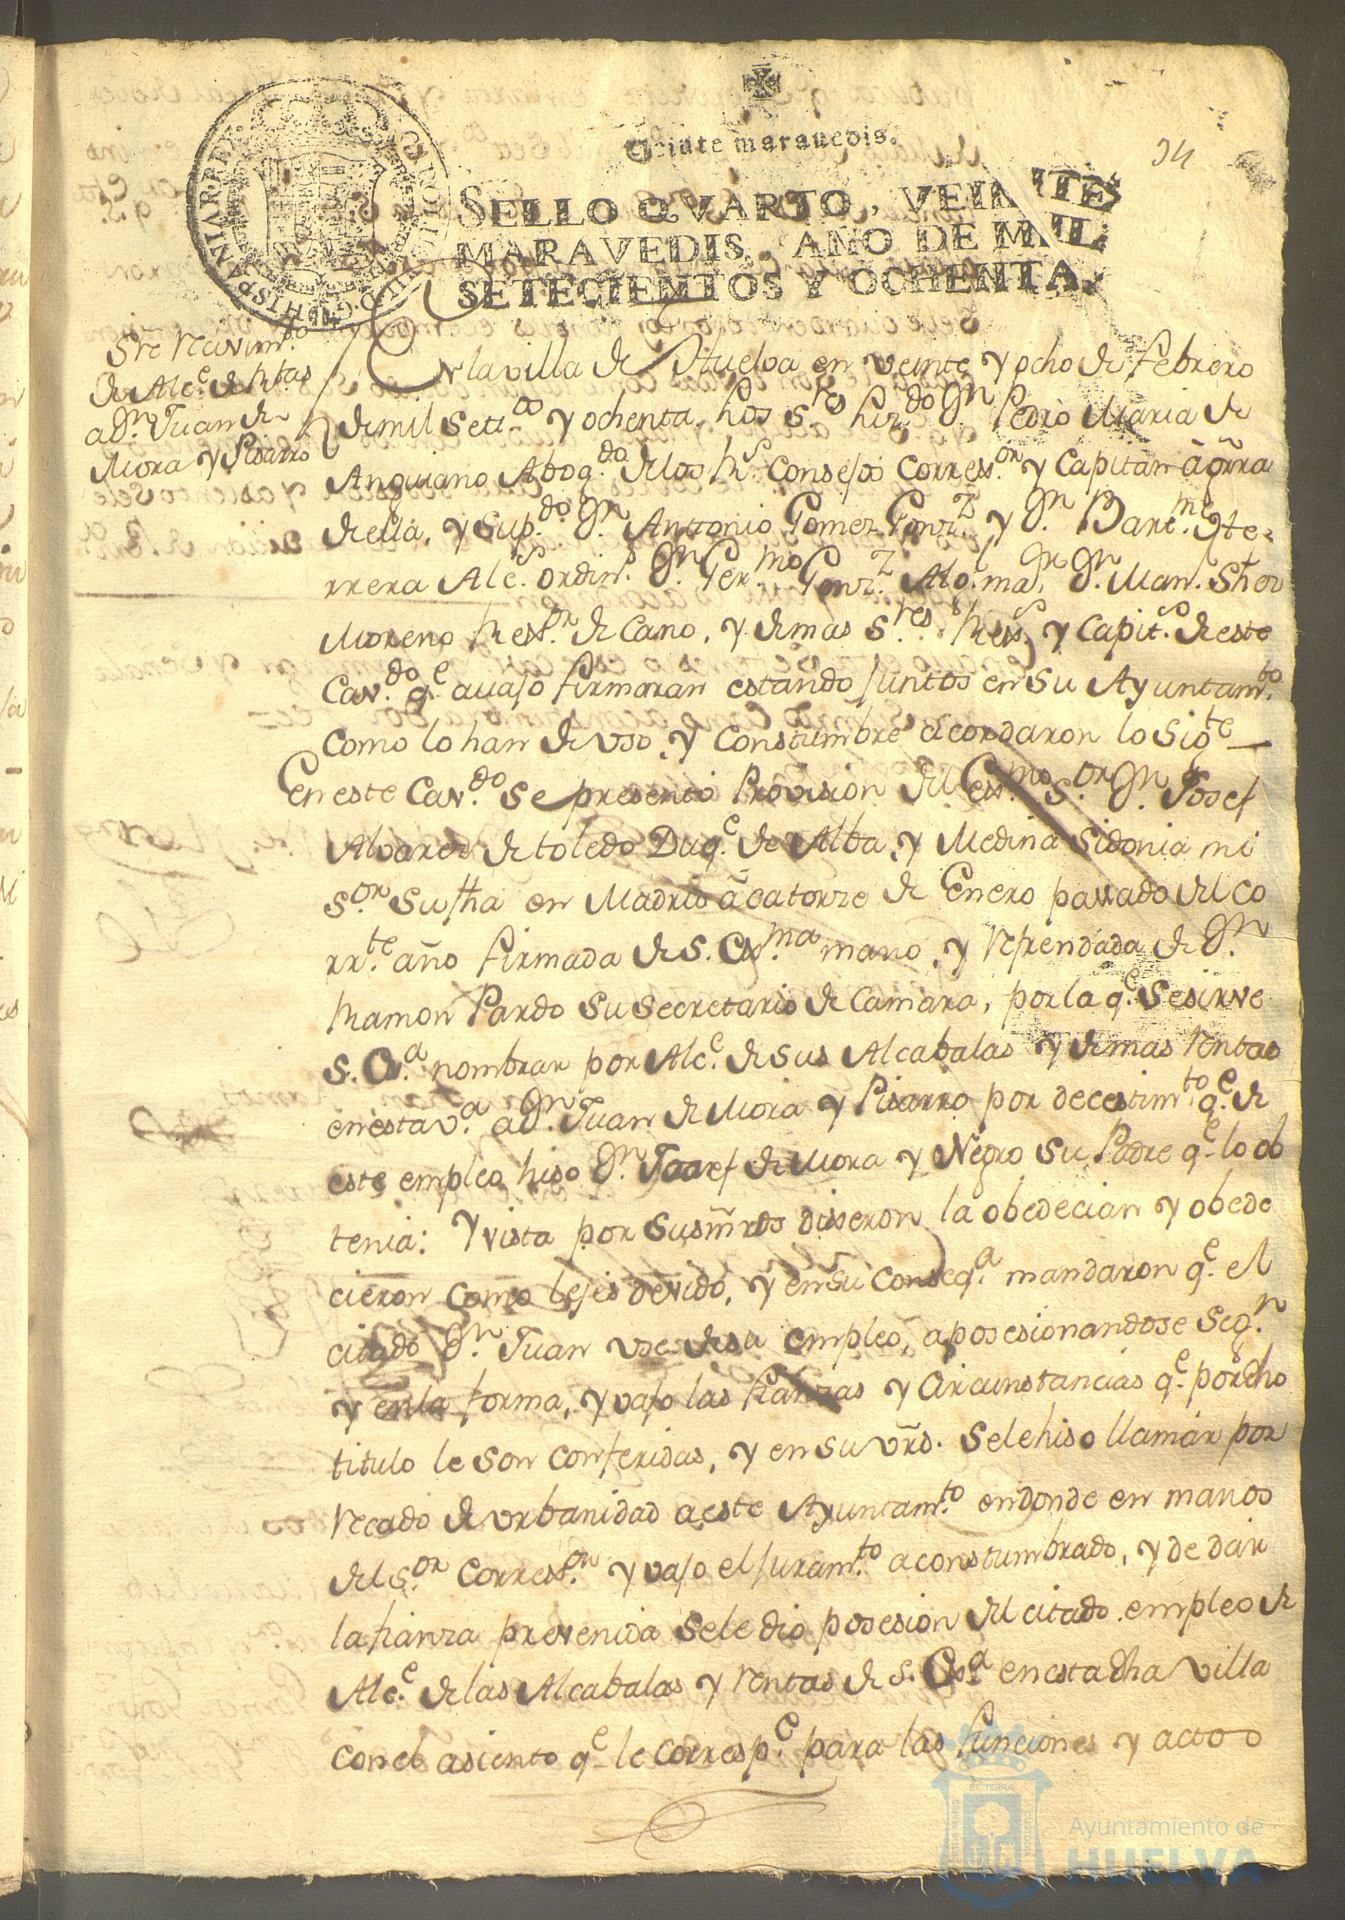 Veinte maravedis.
94
SELLO QVARTO, VEINTE
MARAVEDIS, AÑO DE MIL
SETECIENTOS Y OCHENTA.
CAROLUS III D G HISPANIAR REX
Sre Recivim.to
de Alc.e de Rtas
a D.n Juan de
Mora y Pisarro
En la villa de Huelva en veinte y ocho de Febrero
de mil Sett.os y ochenta los S.res liz.do D.n Pedro Maria de
Anguiano Abog.do de los R.s Consejos Corress.or y Capitan â grra
de ella, y Sup.do D.n Antonio Gomez Gonz.z y D.n Bart.me He-
rrera Alc.s ordin.s D.n Ger.mo Gonz.z Al.l ma.r D.n Man.l Shez
Moreno Ress.or de Cano, y demas S.res Ress.s y Capit.s de este
Cav.do q.e avajo firmaran estando juntos en su Ayuntam.to
como lo han de uso, y Constumbre acordaron lo Sig.te
En este Cav.do Se presentó Provision del Exs.mo S.or D.n Josef
Alvarez de toledo Duq.e de Alba, y Medina Sidonia mi
S.or Su fha en Madrid â catorze de Enero passado del co
rr.te año firmada de S. Ex.ma mano, y Refrendada de D.n
Ramon Pardo Su Secretario de Camara, por la q.e Se sirve
S. Ex.a nombrar por Alc.e de Sus Alcabalas y demas Rentas
en esta v.a a D.n Juan de Mora y Pisarro por decestim.to q.e de
este empleo hiso D.n Josef de Mora y Negro Su Padre q.e lo ob
tenia: Y vista por Sus mrds disseron la obedecian y obede
cieron como les es devido, y en Su Conseq.a mandaron q.e el
citado D.n Juan use de su empleo, aposesionandose Seg.n
y en la forma, y vajo las fianzas y Circunstancias q.e por dho
titulo le Son conferidas, y en su vrd. Se le hiso llamar por
Recado de urbanidad a este Ayuntam.to en donde en manos
del S.or Corress.or y vajo el juram.to aconstumbrado, y de dar
la fianza prevenida Se le dio posesion del citado empleo de
Alc.e de las Alcabalas y Rentas de S. Ex.a en esta dha villa
con el asiento q.e le corresp.e para las funciones y actos
Ayuntamiento de
HUELVA